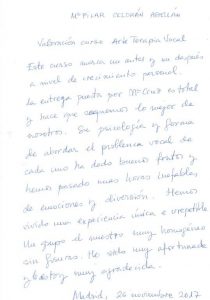 Mª PILAR CELDRÁN ABELLÁN
Valoración curso Arte Terapia Vocal
Este curso marca un antes y un después
a nivel de crecimiento personal.
la entrega puesta por es total
y hace que saquemos lo mejor de
nosotros. Su psicología y forma
de abordar el problema vocal de
cada uno ha dado buenos frutos y
hemos pasado unas horas inefables,
de emociones y diversión. Hemos
vivido una experiencia única e irrepetible.
Un grupo el nuestro muy homogéneo
sin figuras. He sido muy afortunada
y estoy muy agradecida.
Madrid, 26 noviembre 2017